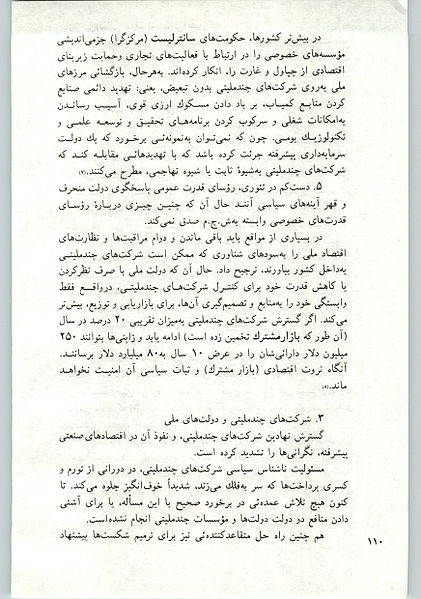 در بیش‌تر کشورها، حکومت‌های سانترلیست (مرکزگرا) جزمی‌اندیشی
مؤسسه‌های خصوصی را در ارتباط با فعالیت‌های تجاری وحمایت زیربنای
اقتصادی از چپاول و غارت را، انکار کرده‌اند. به‌هرحال، بازگشائی مرزهای
ملی به‌روی شرکت‌های چندملیتی بدون تبعیض، یعنی: تهدید دائمی صنایع
کردن منابع کمیاب، بر باد دادن مسکوك ارزی قوی، آسیب رساندن
به‌امکانات شغلی و سرکوب کردن برنامه‌های تحقیق و توسعه علمی و
تکنولوژیك بومی. چون که نمی‌توان به‌نمونه‌ئی برخورد که یك دولت
سرمایه‌داری پیشرفته جرئت کرده باشد که با تهدیدهائی مقابله کند که
شرکت‌های چندملیتی به‌شیوهٔ ثابت یا شیوه تهاجمی، مطرح می‌کنند.(۷)
۵. دست‌کم در تئوری، رؤسای قدرت عمومی پاسخگوی دولت منحرف
و قهر آینه‌های سیاسی آنند حال آن که چنین چیزی دربارهٔ رؤسای
قدرت‌های خصوصی وابسته به‌ش.چ.م صدق نمی‌کند.
در بسیاری از مواقع باید باقی ماندن و دوام مراقبت‌ها و نظارت‌های
اقتصاد ملی را به‌سودهای شناوری که ممکن است شرکت‌های چندملیتی
به‌داخل کشور بیاورند، ترجیح داد. حال آن که دولت ملی با صرف نظرکردن
یا کاهش قدرت خود برای کنترل شرکت‌های چندملیتی، درواقع فقط
وابستگی خود را به‌منابع و تصمیم‌گیری آن‌ها، برای بازاریابی و توزیع، بیش‌تر
می‌کند. اگر گسترش شرکت‌های چندملیتی به‌میزان تقریبی ۲۰ درصد در سال
(آن طور که بازارمشترك تخمین زده است) ادامه یابد و ژاپنی‌ها بتوانند ۲۵۰
میلیون دلار دارائی‌شان را در عرض ۱۰ سال به‌۸۰ میلیارد دلار برسانند.
آنگاه ثروت اقتصادی (بازار مشترك) و ثبات سیاسی آن امنیت نخواهد
ماند.(۸)
۳. شرکت‌های چندملیتی و دولت‌های ملی
گسترش نهادین شرکت‌های چندملیتی، و نفوذ آن در اقتصادهای صنعتی
پیشرفته، نگرانی‌ها را تشدید کرده است.
مسئولیت ناشناس سیاسی شرکت‌های چندملیتی، در دورانی از تورم و
کسری پرداخت‌ها که سر به‌فلك می‌زند، شدیداً خوف‌انگیز جلوه می‌کند. تا
کنون هیچ تلاش عمده‌ئی در برخورد صحیح با این مسأله، یا برای آشتی
دادن منافع دو دولت دولت‌ها و مؤسسات چندملیتی انجام نشده‌است.
هم چنین راه حل متقاعدکننده‌ئی نیز برای ترمیم شکست‌ها پیشنهاد
۱۱۰